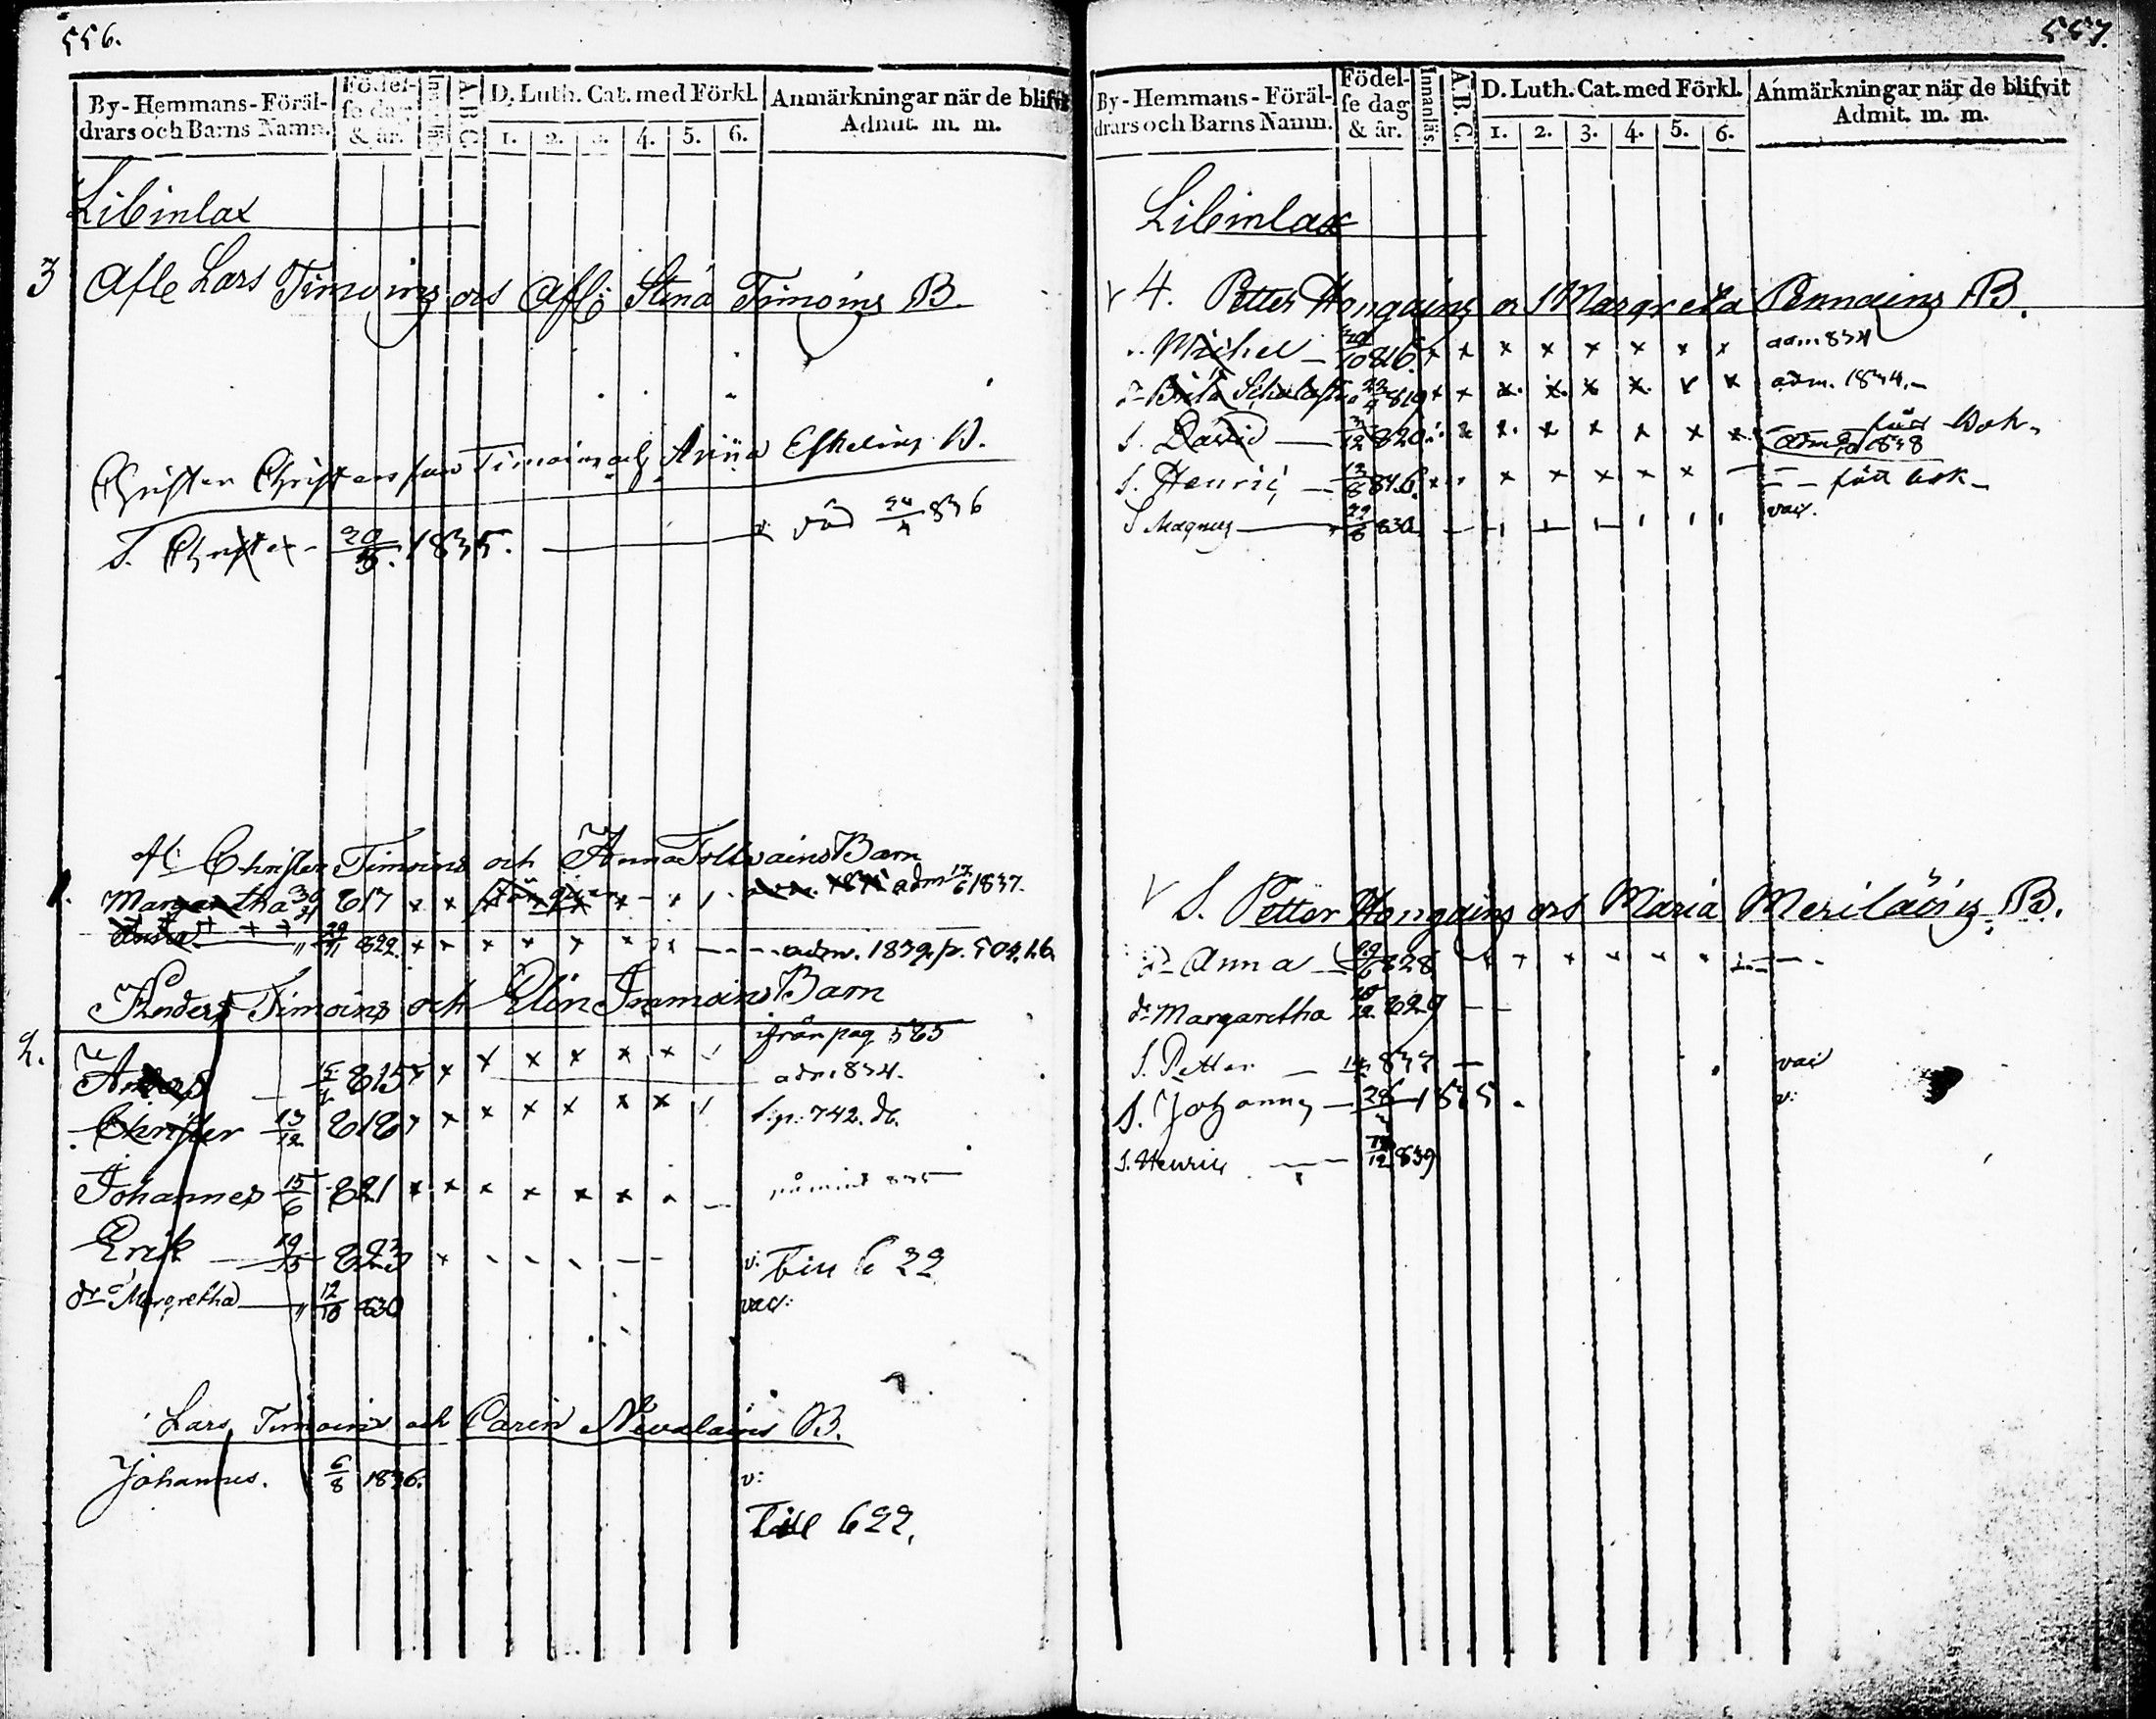 556.
By-Hemmans-Föräl-
drars och Barns Namn.
Födel-
se dag
& år.
A.B.C.
D. Luth. Cat. med Förkl.
1. 2. 3. 4. 5. 6.
Anmärkningar när de blifvit
Admit. m. m.
Libinlax
3 Afle Lars Timoins ocs Afl: Stina Timoins B.
Christer Christersson Timoins och Anna Eskelins B.
S. Christer - 20/3. 1835. v. död 24/4 836
Afl: Christer Timoins och Anna Tolvains Barn
1. Margaretha 30/11 817 x x x x adm 17/6 1837.
Anna " 29/11 822. x x x x x x adm. 1839. p. 504. 26
Anders Timoins och Elin Immoins Barn
2.
ifrån pag 563
Anders 815 x x x x x x x adm 834.
Christer 13/12 818 x x x x x x x s. p. 742. db.
Johannes 15/6 821 x x x x x x
Erik 19/5 823 x - - - - - v: Till 622
dr Margretha " 12/10 830 vac:
Lars Timoins och Carin Nevalains B.
Johannes. 6/8 1836. v:
Till 622.
557.
By-Hemmans-Föräl-
drars och Barns Namn.
Födel-
se dag
& år.
Innanläs.
A.B.C.
D. Luth. Cat. med Förkl.
1. 2. 3. 4. 5. 6.
Anmärkningar när de blifvit
Admit. m. m.
Libinlax
v 4. Petter Hongains oc Margreta Pennains B.
Michel - 816. x x x x x x x x adm 834
dr Brita Scholastica 23/4 819 x x x x x x x x adm. 1834.-
S. David 12 820 x x x x x x - - fått bok-
adm 1838
S. Henric - 13/8 816 x x x x x - - fått bok-
S Magnus 29/6 830 vac.
v S. Petter Hongains ocs Maria Meriläins B.
dr Anna - 29/6 828 x x x x x
dr Margaretha 18/12 829 - -
S. Petter - 832 - vac
S. Johannes - 26 1835. v:
S. Henric - - 12 839